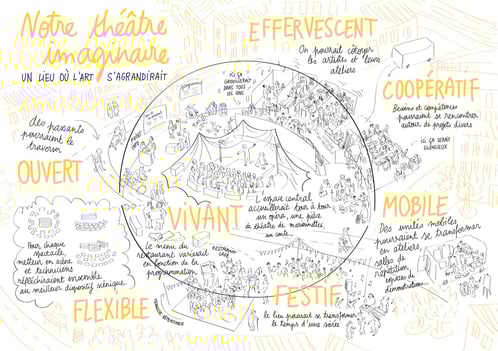 Notre théâtre
imaginaire
UN LIEU OÙ L'ART S'AGRANDIRAIT
EFFERVESCENT
On pourrait côtoyer
les artistes et leurs
ateliers
ICI ÇA
GROUILLERAIT
DANS TOUS
LES SENS
COOPÉRATIF
Besoins et compétences
pourraient se rencontrer
autour de projets divers
ICI ÇA SERAIT
des passants
pourraient le
traverser
OUVERT
VIVANT
L'espace central
accueillerait tour à tour
un opéra, une pièce
de théâtre de marionnettes,
un conte...
MOBILE
Des unités mobiles
pourraient se transformer
en ateliers,
salles de
répétition,
espaces de
démonstration...
Pour chaque
spectacle,
metteur en scène
et techniciens
réfléchiraient ensemble
au meilleur dispositif scénique
FLEXIBLE
Le menu du
restaurant varierait
en fonction de la
programmation
RESTAURANT
CAFÉ
TERRASSE
FESTIF
le lieu pourrait se transformer
le temps d'une soirée